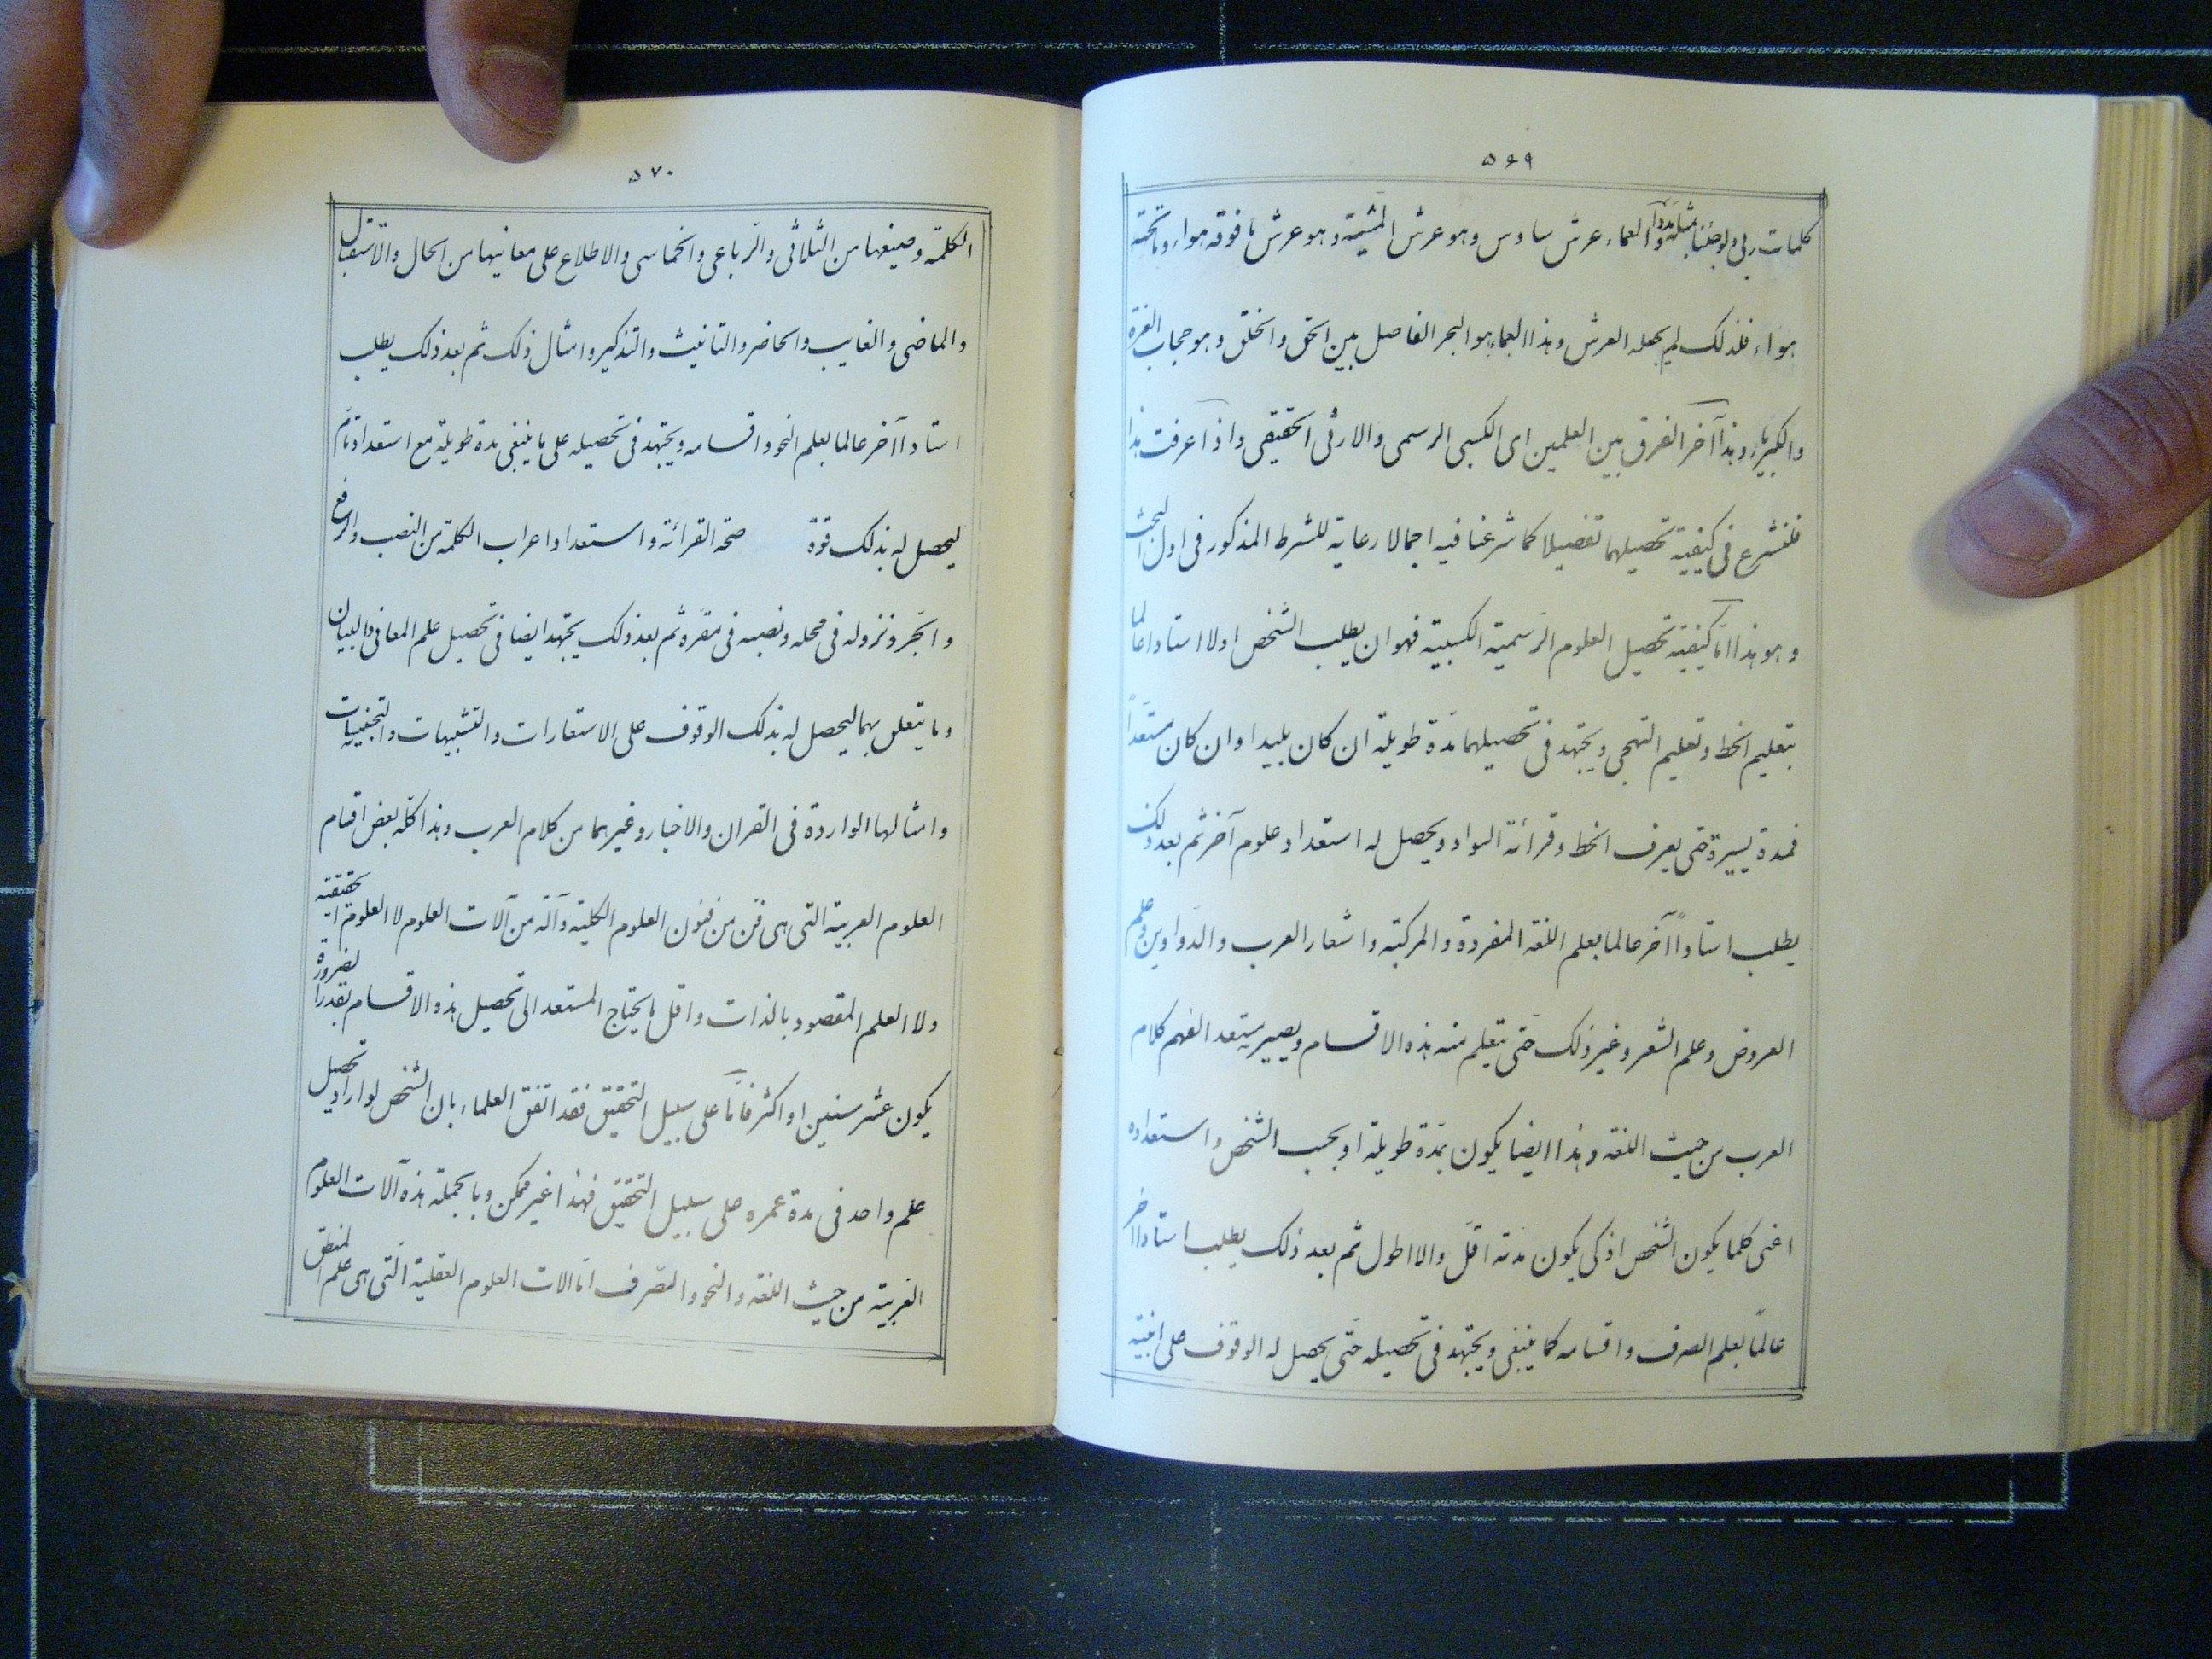 ٥٦٩
كلمات ربى ولو جئنا بمثله مددا و العماء عرش سادس وهو عرش المشيّة وهو عرش ما فوقه هواء وما تحته
هواء فلذلك لم يجعله العرش وهذا العماء هو البحر الفاصل بين الحق والخلق وهو حجاب العزة
والكبرياء وهذا آخر الفرق بين العلمين اى الكسبى الرسمى والارثى الحقيقى واذا عرفت هذا
فلنشرع فى كيفية تحصيلهما تفصيلا كما شرعنا فيه اجمالا رعاية للشرط المذكور فى اول البحث
وهو هذا امّا كيفية تحصيل العلوم الرسمية الكسبية فهو ان يطلب الشخص اولا استادا عالما
بتعليم الخط وتعليم التهجى ويجتهد فى تحصيلهما مدّة طويلة ان كان بليدا وان كان مستعدّاً
فمدة يسيرة حتى يعرف الخط وقرائة السواد ويحصل له استعداد علوم آخر ثم بعد ذلك
يطلب استاداً آخر عالما بعلم اللغة المفردة والمركبة واشعار العرب والدّواوين وعلم
العروض وعلم الشعر وغير ذلك حتى يتعلم منه هذه الاقسام ويصير مستعد الفهم كلام
العرب من حيث اللغة وهذا ايضا يكون بمدّة طويلة او بحسب الشخص واستعداده
اعنى كلما يكون الشخص اذكى يكون مدته اقلّ والا اطول ثم بعد ذلك يطلب استادا اخر
عالماً بعلم الصرف واقسامه كما ينبغى ويجتهد فى تحصيله حتّى يحصل له الوقوف على ابنية
٥٧٠
الكلمة وصيغها من الثلاثى والرّباعى والخماسى والاطلاع على معانيها من الحال والاستقبال
والماضى والغايب والحاضر والتانيث والتذكير وامثال ذلك ثم بعد ذلك يطلب
استادا آخر عالما بعلم النحو واقسامه ويجتهد فى تحصيله على ما ينبغى مدة طويلة مع استعداد تامّ
ليحصل له بذلك قوة صحّة القرائة واستعداد اعراب الكلمة من النصب والرفع
والجر ونزوله فى محله ونصبه فى مقرّه ثم بعد ذلك يجتهد ايضا فى تحصيل علم المعانى والبيان
وما يتعلق بهما ليحصل له بذلك الوقوف على الاستعارات والتشبيهات والتجنيسات
وامثالها الواردة فى القران والاخبار وغيرهما من كلام العرب وهذا كلّه بعض اقسام
العلوم العربية التى هى فنّ من فنون العلوم الكلية وآلة من آلات العلوم لا العلوم الحقيقية
ولا العلم المقصود بالذات واقل ما يحتاج المستعد الى تحصيل هذه الاقسام بقدر الضرورة
يكون عشر سنين او اكثر فامّا على سبيل التحقيق فقد اتفق العلماء بان الشخص لو اراد تحصيل
علم واحد فى مدة عمره على سبيل التحقيق فهذا غير ممكن وبالجملة هذه آلات العلوم
العربية من حيث اللغة والنحو والصّرف امّا الات العلوم العقلية الّتى هى علم المنطق